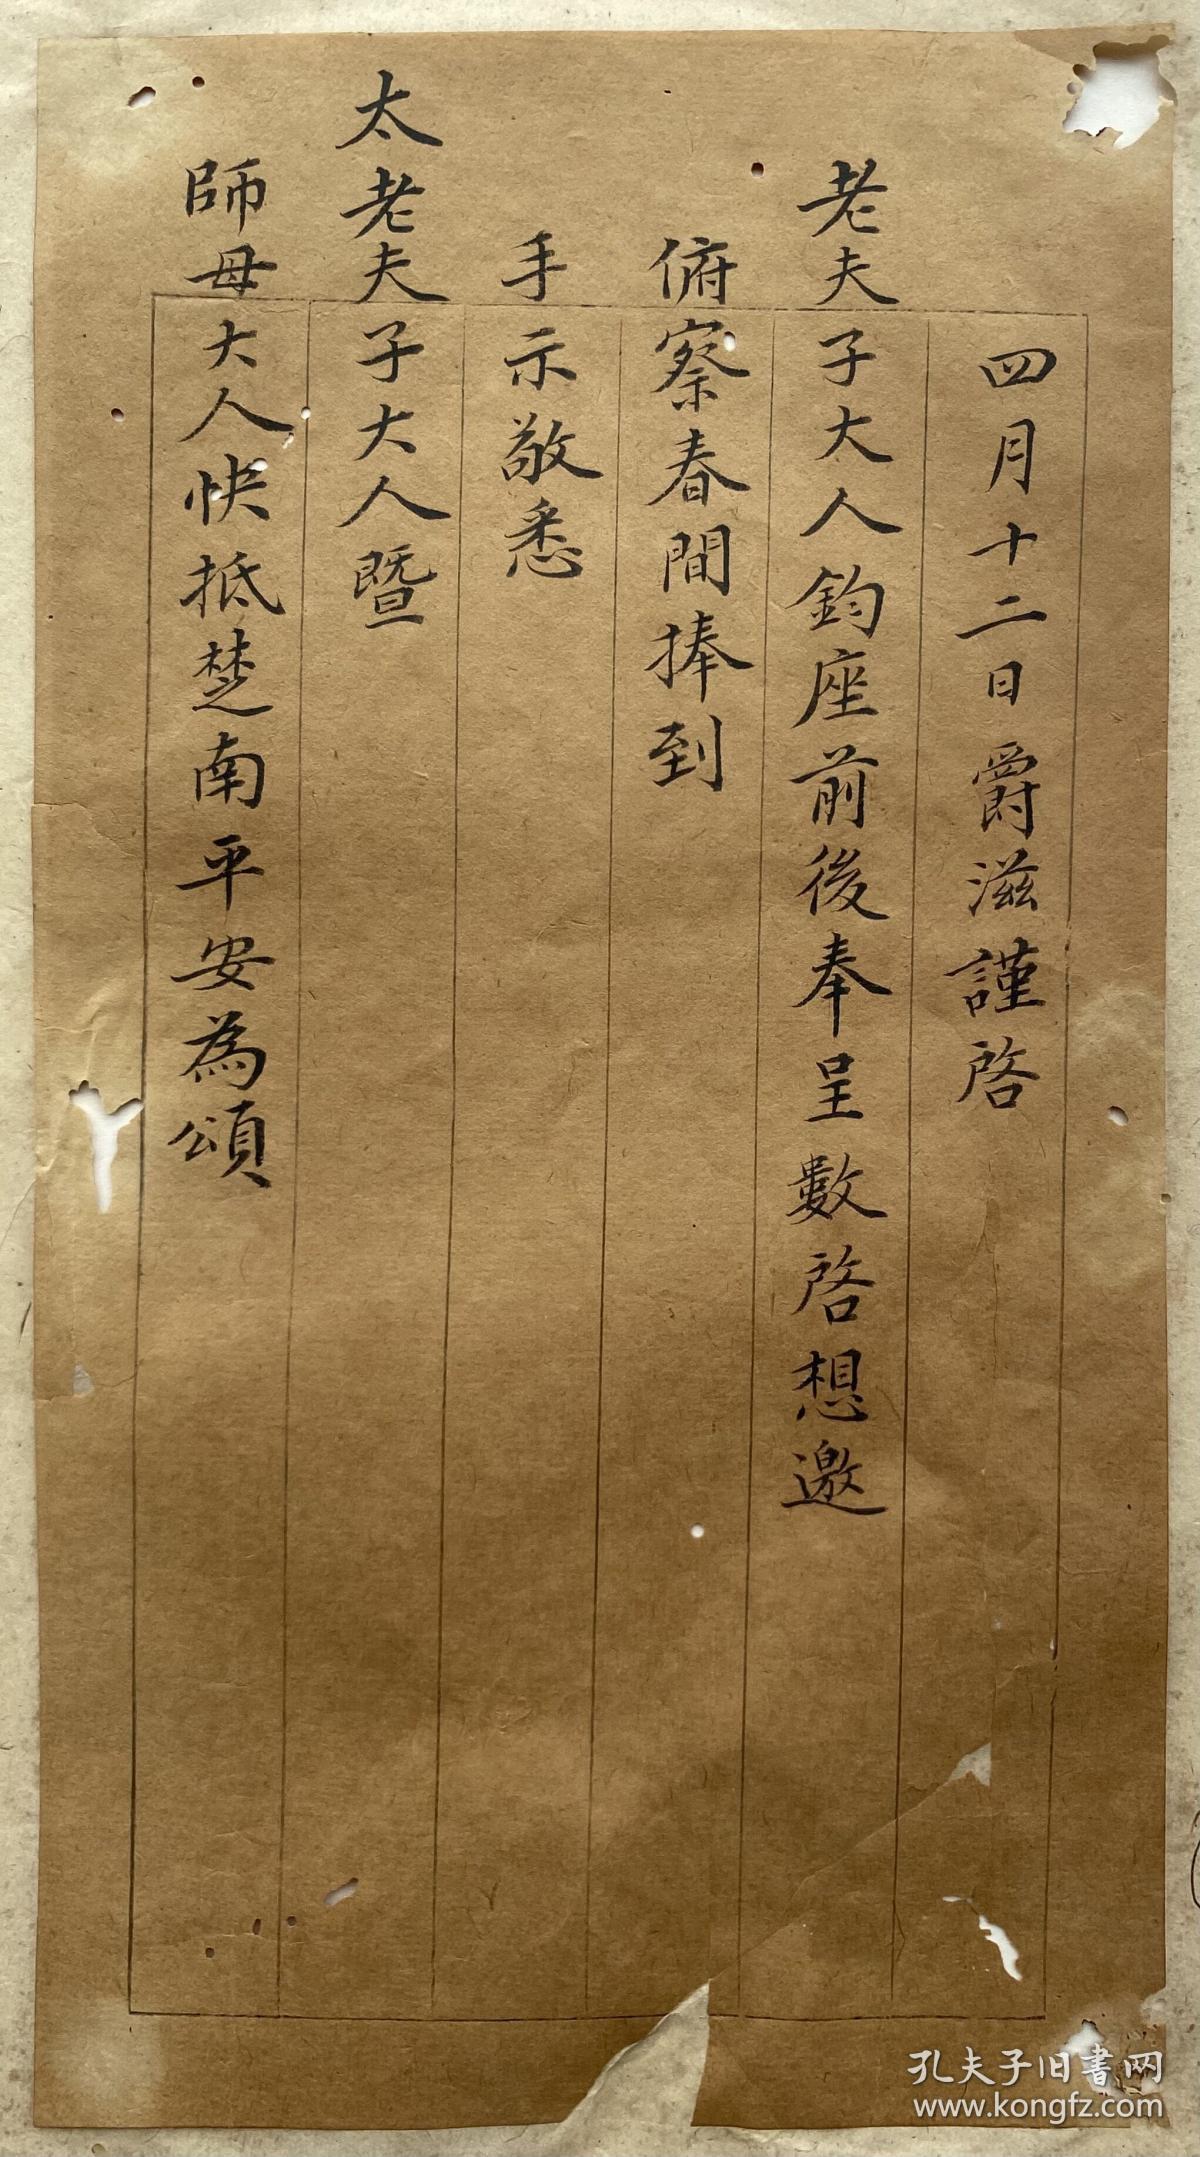 四月十二日爵滋謹啓
老夫子大人鈞座前後奉呈數啓想邀
俯察春間捧到
手示敬悉
太老夫子大人暨
師母大人快抵楚南平安為頌
孔夫子旧書网
www.kongfz.com